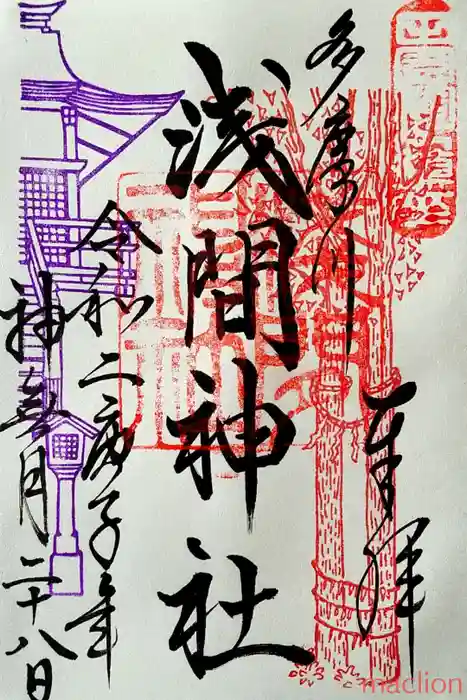 奉拝
多摩川
浅間神社
令和二庚子年
神喜月二十八日
maclion